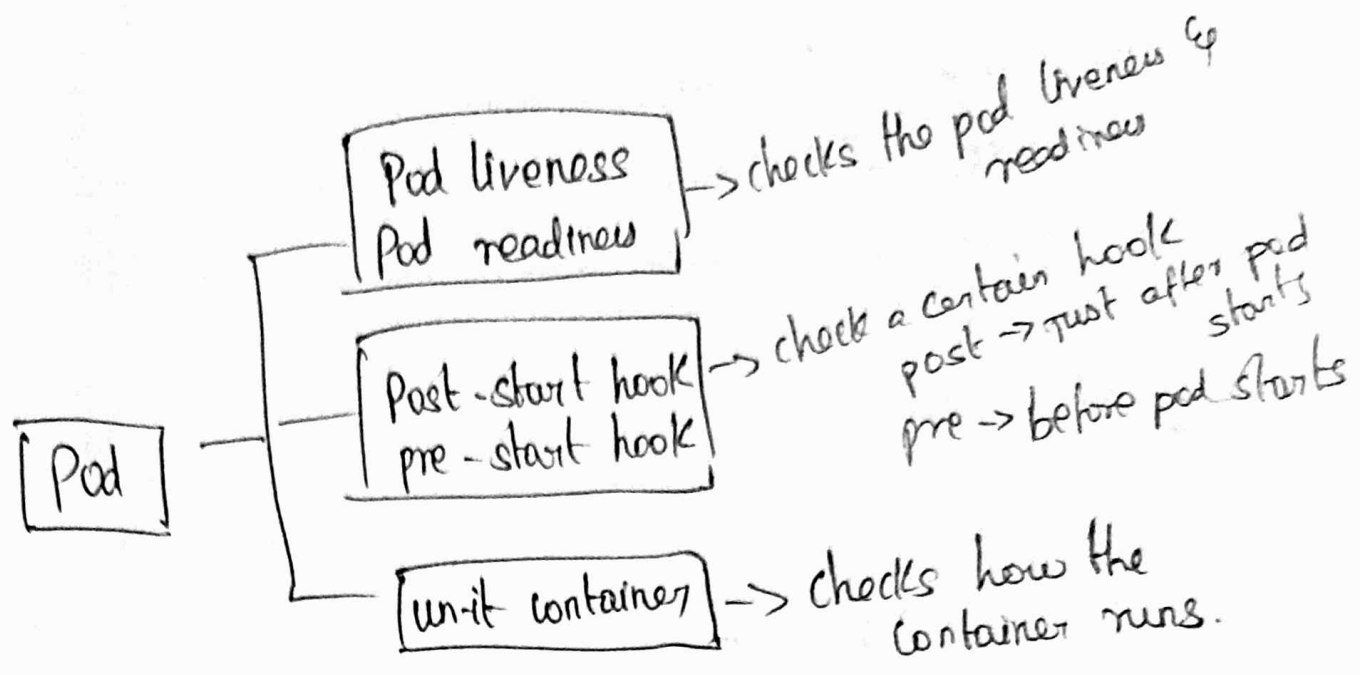 Pod
Pod liveness
Pod readiness
-> checks the pod liveness &
readiness
Post-start hook
pre-start hook
-> check a certain hook
post -> just after pod
starts
pre -> before pod starts
un-it container
-> checks how the
container runs.